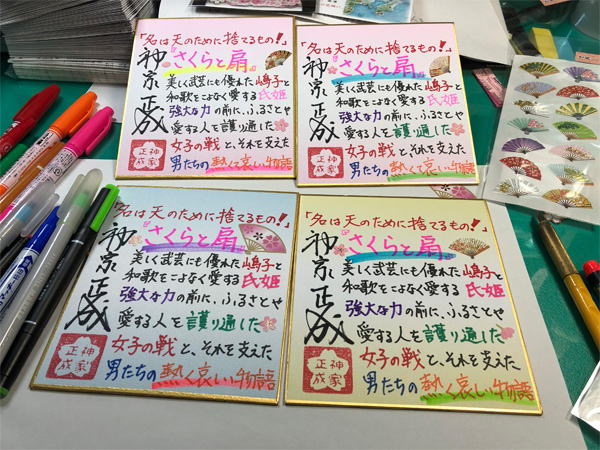 「名は天のために捨てるもの!」
『さくらと扇』
美しく武芸にも優れた嶋子と
和歌をこよなく愛する氏姫
強大な力の前に、ふるさとや
愛する人を護り通した
女子の戦と、それを支えた
男たちの熱く哀しい物語
神家正成
神家正成
「名は天のために捨てるもの!」
『さくらと扇』
美しく武芸にも優れた嶋子と
和歌をこよなく愛する氏姫
強大な力の前に、ふるさとや
愛する人を護り通した
女子の戦と、それを支えた
男たちの熱く哀しい物語
神家正成
神家正成
「名は天のために捨てるもの!」
『さくらと扇』
美しく武芸にも優れた嶋子と
和歌をこよなく愛する氏姫
強大な力の前に、ふるさとや
愛する人を護り通した
女子の戦と、それを支えた
男たちの熱く哀しい物語
神家正成
神家正成
「名は天のために捨てるもの!」
『さくらと扇』
美しく武芸にも優れた嶋子と
和歌をこよなく愛する氏姫
強大な力の前に、ふるさとや
愛する人を護り通した
女子の戦と、それを支えた
男たちの熱く哀しい物語
神家正成
神家正成